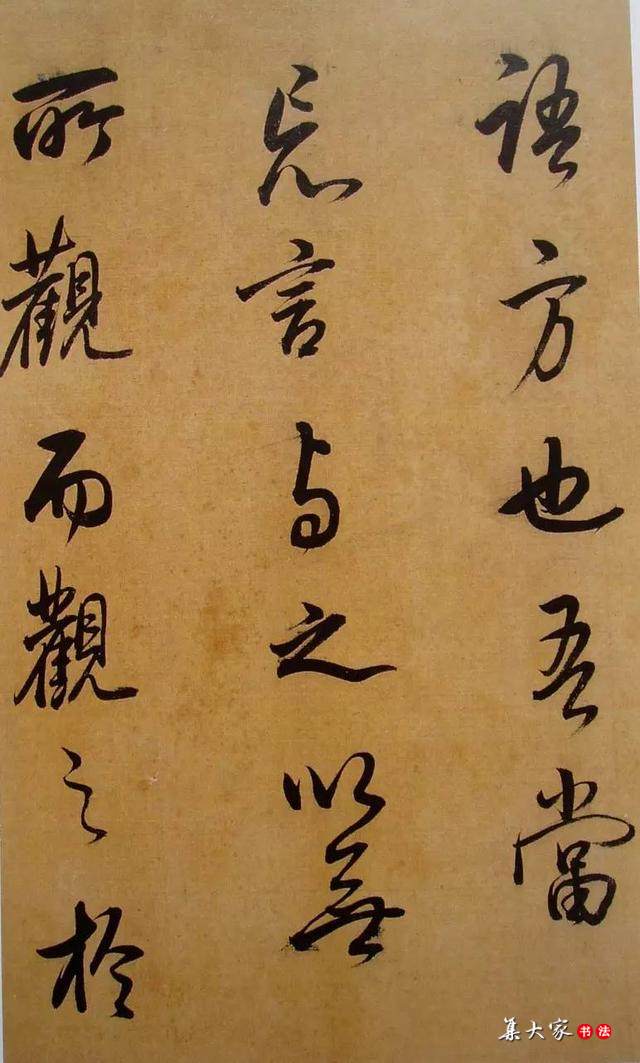 語方也吾當
忘言与之以無
所觀而觀之於
集大家书法